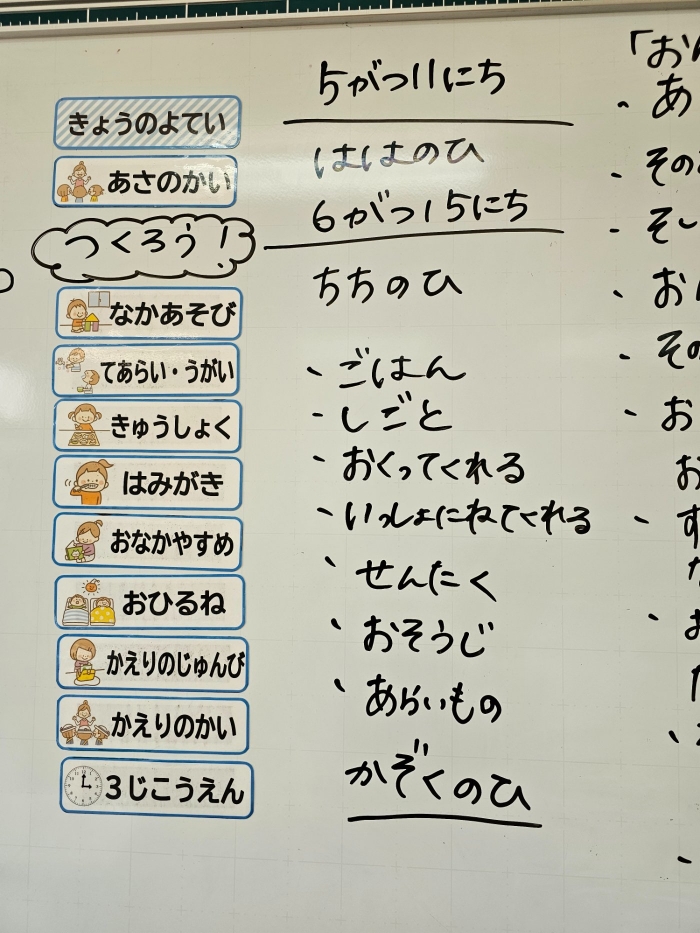 きょうのよてい
あさのかい
つくろう!
なかあそび
てあらい・うがい
きゅうしょく
はみがき
おなかやすめ
おひるね
かえりのじゅんび
かえりのかい
3じこうえん
5がつ11にち
ははのひ
6がつ15にち
ちちのひ
・ごはん
・しごと
・おくってくれる
・いっしょにねてくれる
・せんたく
・おそうじ
・あらいもの
かぞくのひ
「お
・あ
・その
・そ
・お
・その
・お
お
・す